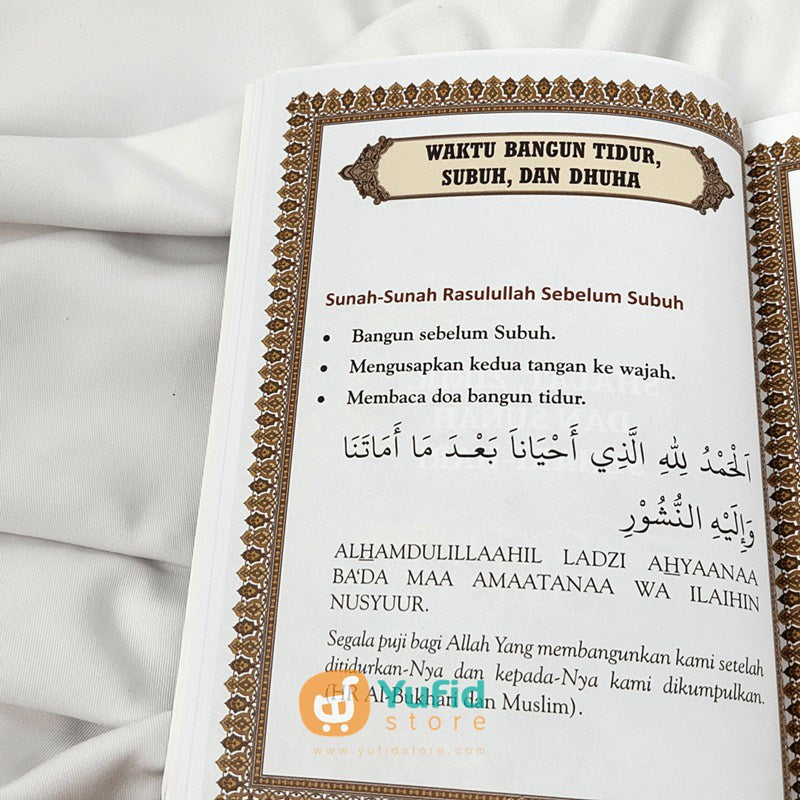 WAKTU BANGUN TIDUR,
SUBUH, DAN DHUHA
Sunah-Sunah Rasulullah Sebelum Subuh
• Bangun sebelum Subuh.
• Mengusapkan kedua tangan ke wajah.
• Membaca doa bangun tidur.
اَلْحَمْدُ لِلّٰهِ الَّذِي أَحْيَاناَ بَعْدَ مَا أَمَاتَنَا
وَإِلَيْهِ النُّشُوْرِ
ALHAMDULILLAAHIL LADZI AHYAANAA
BA‘DA MAA AMAATANAA WA ILAIHIN
NUSYUUR.
Segala puji bagi Allah Yang membangunkan kami setelah
ditidurkan-Nya dan kepada-Nya kami dikumpulkan.
(HR Al-Bukhari dan Muslim).
Yufid
store
www.yufidstore.com